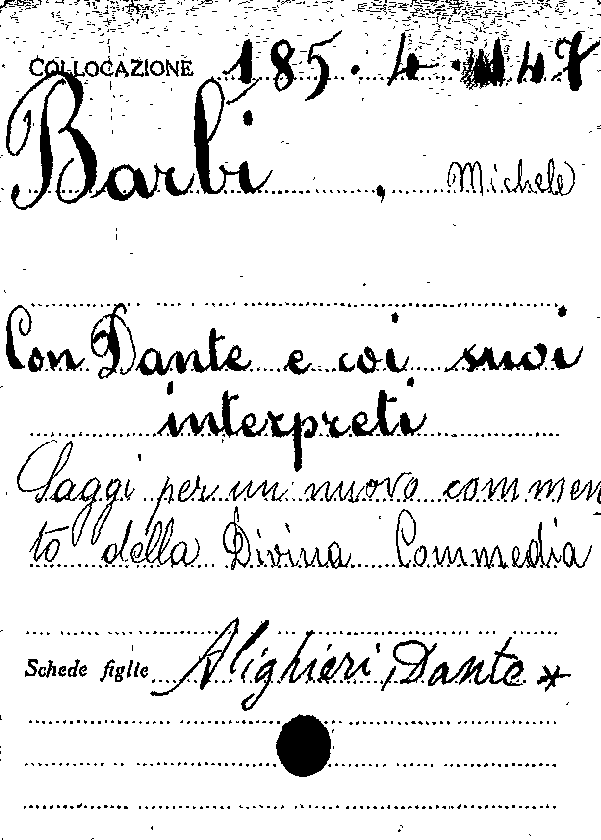 COLLOCAZIONE 185.4.147
Barbi, Michele
Con Dante e coi suoi
interpreti
Saggi per un nuovo commen
to della Divina Commedia
Schede figlie Alighieri, Dante *